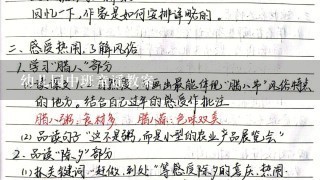 回忆一下，作家是如何安排详略的。
二、感受热闹，了解风俗
1. 学习"腊八"部分
画出最能体现"腊八节"风俗特点
的地方。结合自己过年的感受作批注
腊八粥：食材多 腊八蒜：色味双美
(2) 品读句子"这不是粥，而是小型的农业产品展览会"
2. 品读"除夕"部分
(1) 抓关键词"赶做、到处"等感受除夕的喜庆、热闹